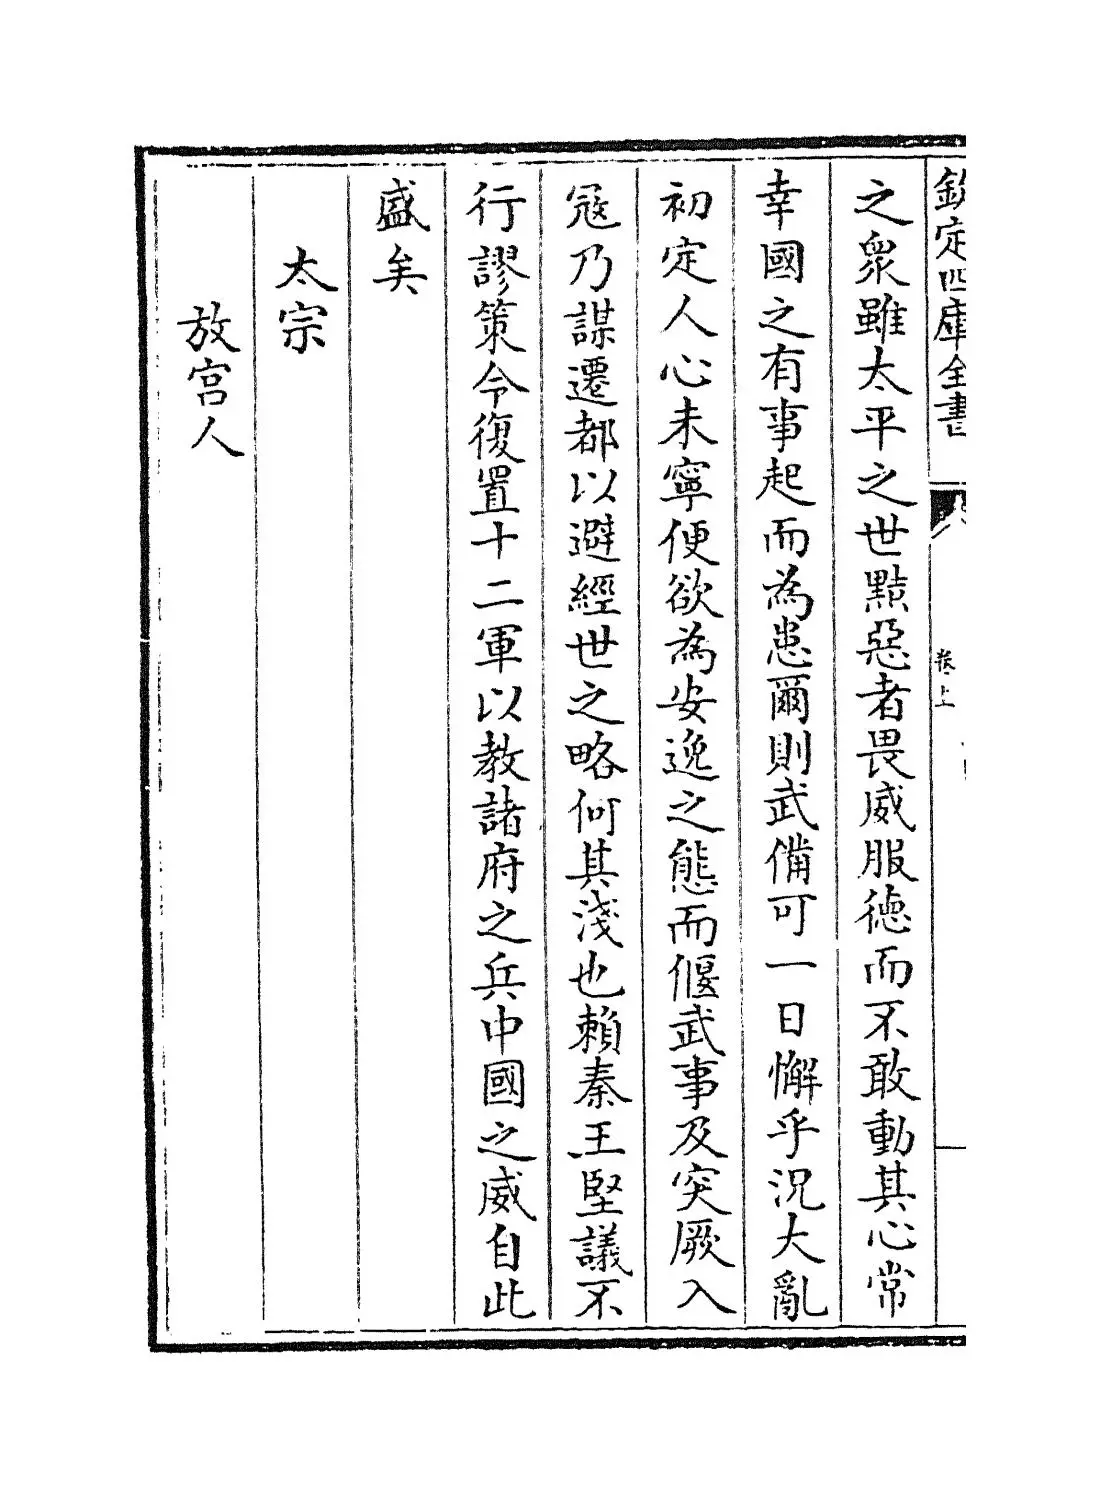 欽定四庫全書
卷上
之衆雖太平之世黠惡者畏威服徳而不敢動其心常
幸國之有事起而為患爾則武備可一日懈乎況大亂
初定人心未寧便欲為安逸之態而偃武事及突厥入
冦乃謀遷都以避經世之略何其淺也賴秦王堅議不
行謬策令復置十二軍以教諸府之兵中國之威自此
盛矣
太宗
放宫人